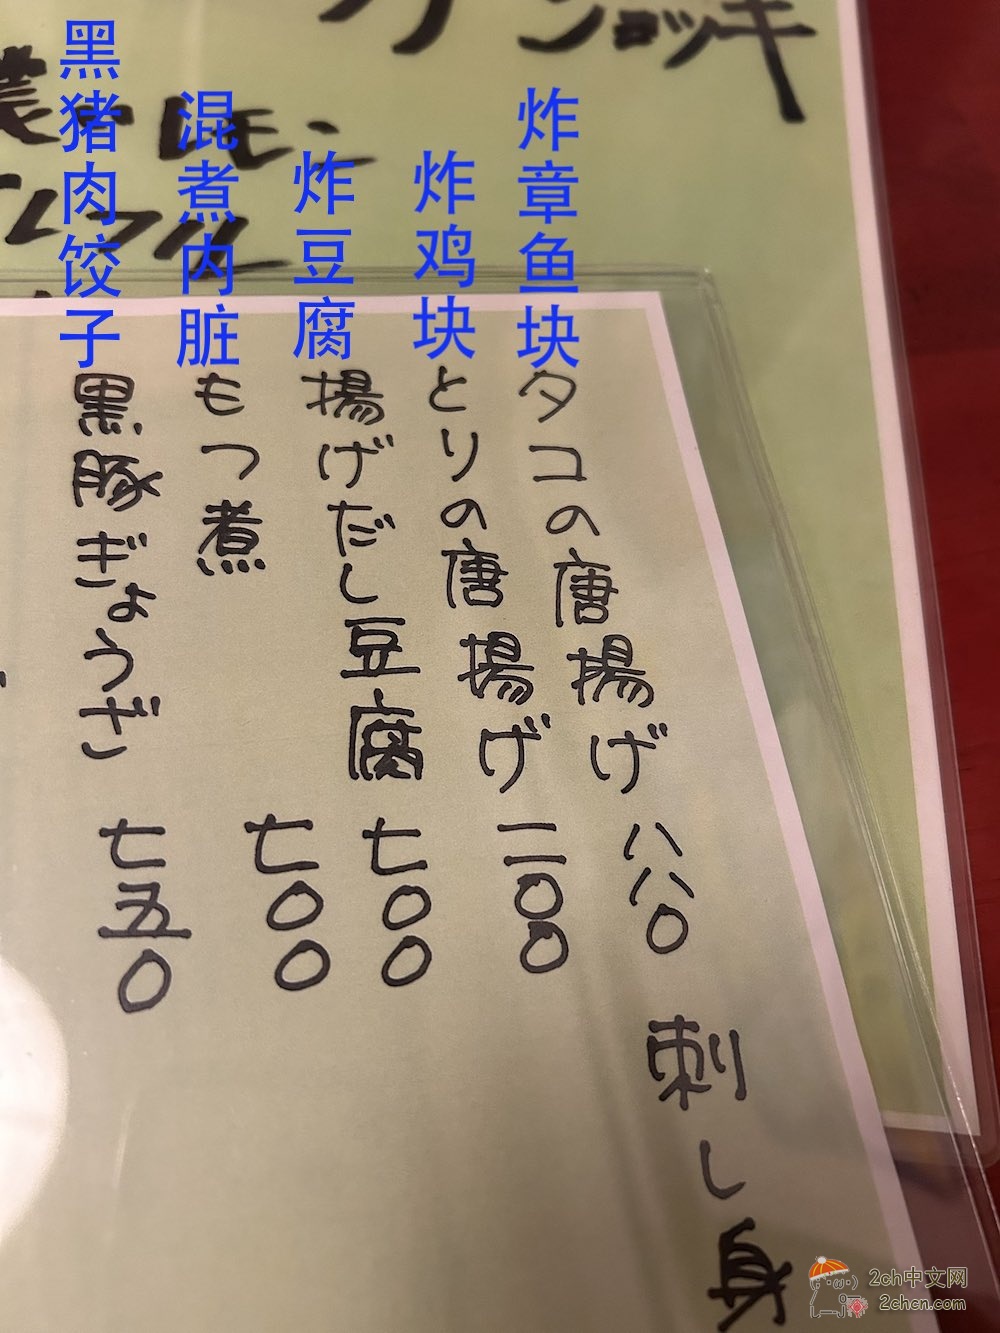 ジョッキ
レモン
炸章鱼块
炸鸡块
炸豆腐
混煮内脏
黑猪肉饺子
刺し身
タコの唐揚げ 八八〇
とりの唐揚げ 二〇〇
揚げだし豆腐 七〇〇
もつ煮 七〇〇
黒豚ぎょうざ 七五〇
2ch中文网
2chcn.com